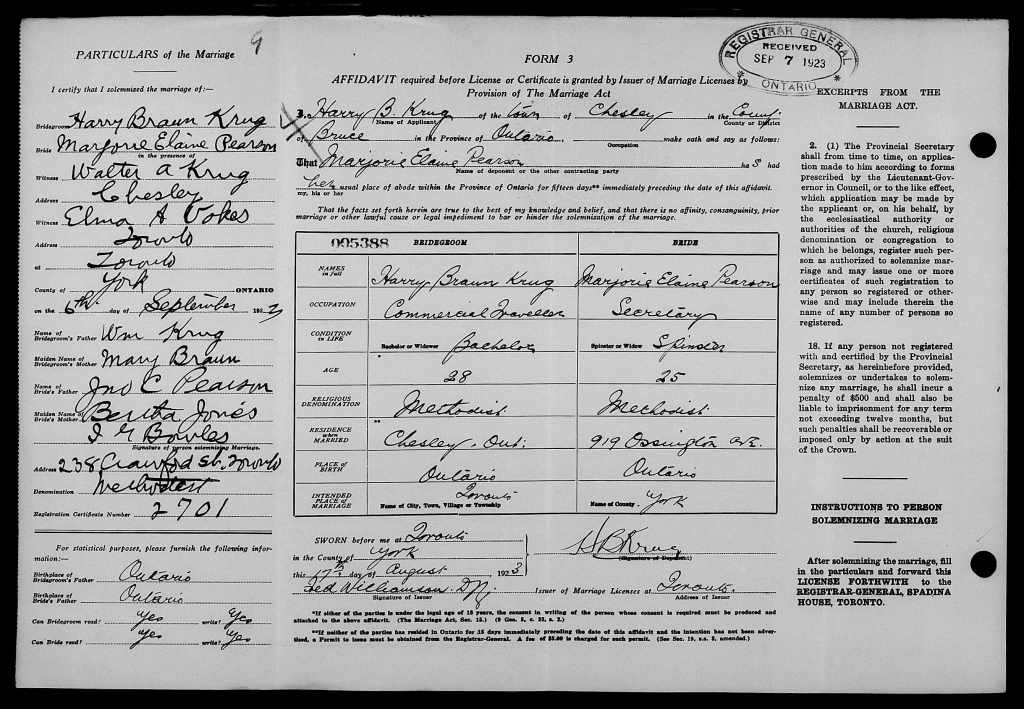 PARTICULARS of the Marriage
9
I certify that I solemnized the marriage of:—
Bridegroom Harry Braun Krug
Bride Marjorie Elaine Pearson
in the presence of
Witness Walter A Krug
Address Chesley
Witness Elma A Vokes
Address Toronto
at Toronto
County of York ONTARIO
on the 6th day of September 1923
Name of Bridegroom's Father Wm Krug
Maiden Name of Bridegroom's Mother Mary Braun
Name of Bride's Father Jno C Pearson
Maiden Name of Bride's Mother Bertha Jones
Bowles
Signature of person solemnizing Marriage.
Address 238 Crawford St. Toronto
Denomination Methodist
Registration Certificate Number 2701
For statistical purposes, please furnish the following information:—
Birthplace of Bridegroom's Father Ontario
Birthplace of Bride's Father Ontario
Can Bridegroom read? Yes write? Yes
Can Bride read? Yes write? Yes
REGISTRAR GENERAL
RECEIVED
SEP 7 1923
* ONTARIO *
FORM 3
AFFIDAVIT required before License or Certificate is granted by Issuer of Marriage Licenses by
Provision of The Marriage Act
I, Harry B. Krug of the Town of Chesley in the County
Name of Applicant County or District
of Bruce in the Province of Ontario make oath and say as follows:
Occupation
That Marjorie Elaine Pearson has had
Name of deponent or the other contracting party
her usual place of abode within the Province of Ontario for fifteen days** immediately preceding the date of this affidavit.
my, his or her
That the facts set forth herein are true to the best of my knowledge and belief, and that there is no affinity, consanguinity, prior
marriage or other lawful cause or legal impediment to bar or hinder the solemnization of the marriage.
005388 BRIDEGROOM BRIDE
NAMES in full Harry Braun Krug Marjorie Elaine Pearson
OCCUPATION Commercial Traveller Secretary
CONDITION IN LIFE Bachelor or Widower Bachelor Spinster or Widow Spinster
AGE 28 25
RELIGIOUS DENOMINATION Methodist Methodist
RESIDENCE when MARRIED ** Chesley. Ont. 919 Ossington Ave.
PLACE OF BIRTH Ontario Ontario
INTENDED PLACE OF MARRIAGE Name of City, Town, Village or Township Toronto Name of County York
SWORN before me at Toronto
in the County of York
this 17th day of August 1923
HBKrug
(Signature of Deponent)
Williamson
Signature of Issuer
Issuer of Marriage Licenses at Toronto.
Address of Issuer
*If either of the parties is under the legal age of 18 years, the consent in writing of the person whose consent is required must be produced and
attached to the above affidavit. (The Marriage Act, Sec. 15.) (9 Geo. 5, c. 35, s. 2.)
**If neither of the parties has resided in Ontario for 15 days immediately preceding the date of this affidavit and the intention has not been advertised, a Permit to issue must be obtained from the Registrar-General. A fee of $5.00 is charged for such permit. (See Sec. 19, s.s. 3, amended.)
EXCERPTS FROM THE
MARRIAGE ACT.
2. (1) The Provincial Secretary
shall from time to time, on application
made to him according to forms
prescribed by the Lieutenant-Governor
in Council, or to the like effect,
which application may be made by
the applicant or, on his behalf, by
the ecclesiastical authority or
authorities of the church, religious
denomination or congregation to
which he belongs, register such person
as authorized to solemnize marriage
and may issue one or more
certificates of such registration to
any person so registered or otherwise
and may include therein the
name of any number of persons so
registered.
18. If any person not registered
with and certified by the Provincial
Secretary, as hereinbefore provided,
solemnizes or undertakes to solemnize
any marriage, he shall incur
a penalty of $500 and shall also be
liable to imprisonment for any term
not exceeding twelve months, but
such penalties shall be recoverable or
imposed only by action at the suit
of the Crown.
INSTRUCTIONS TO PERSON
SOLEMNIZING MARRIAGE
After solemnizing the marriage, fill
in the particulars and forward this
LICENSE FORTHWITH to the
REGISTRAR-GENERAL, SPADINA
HOUSE, TORONTO.